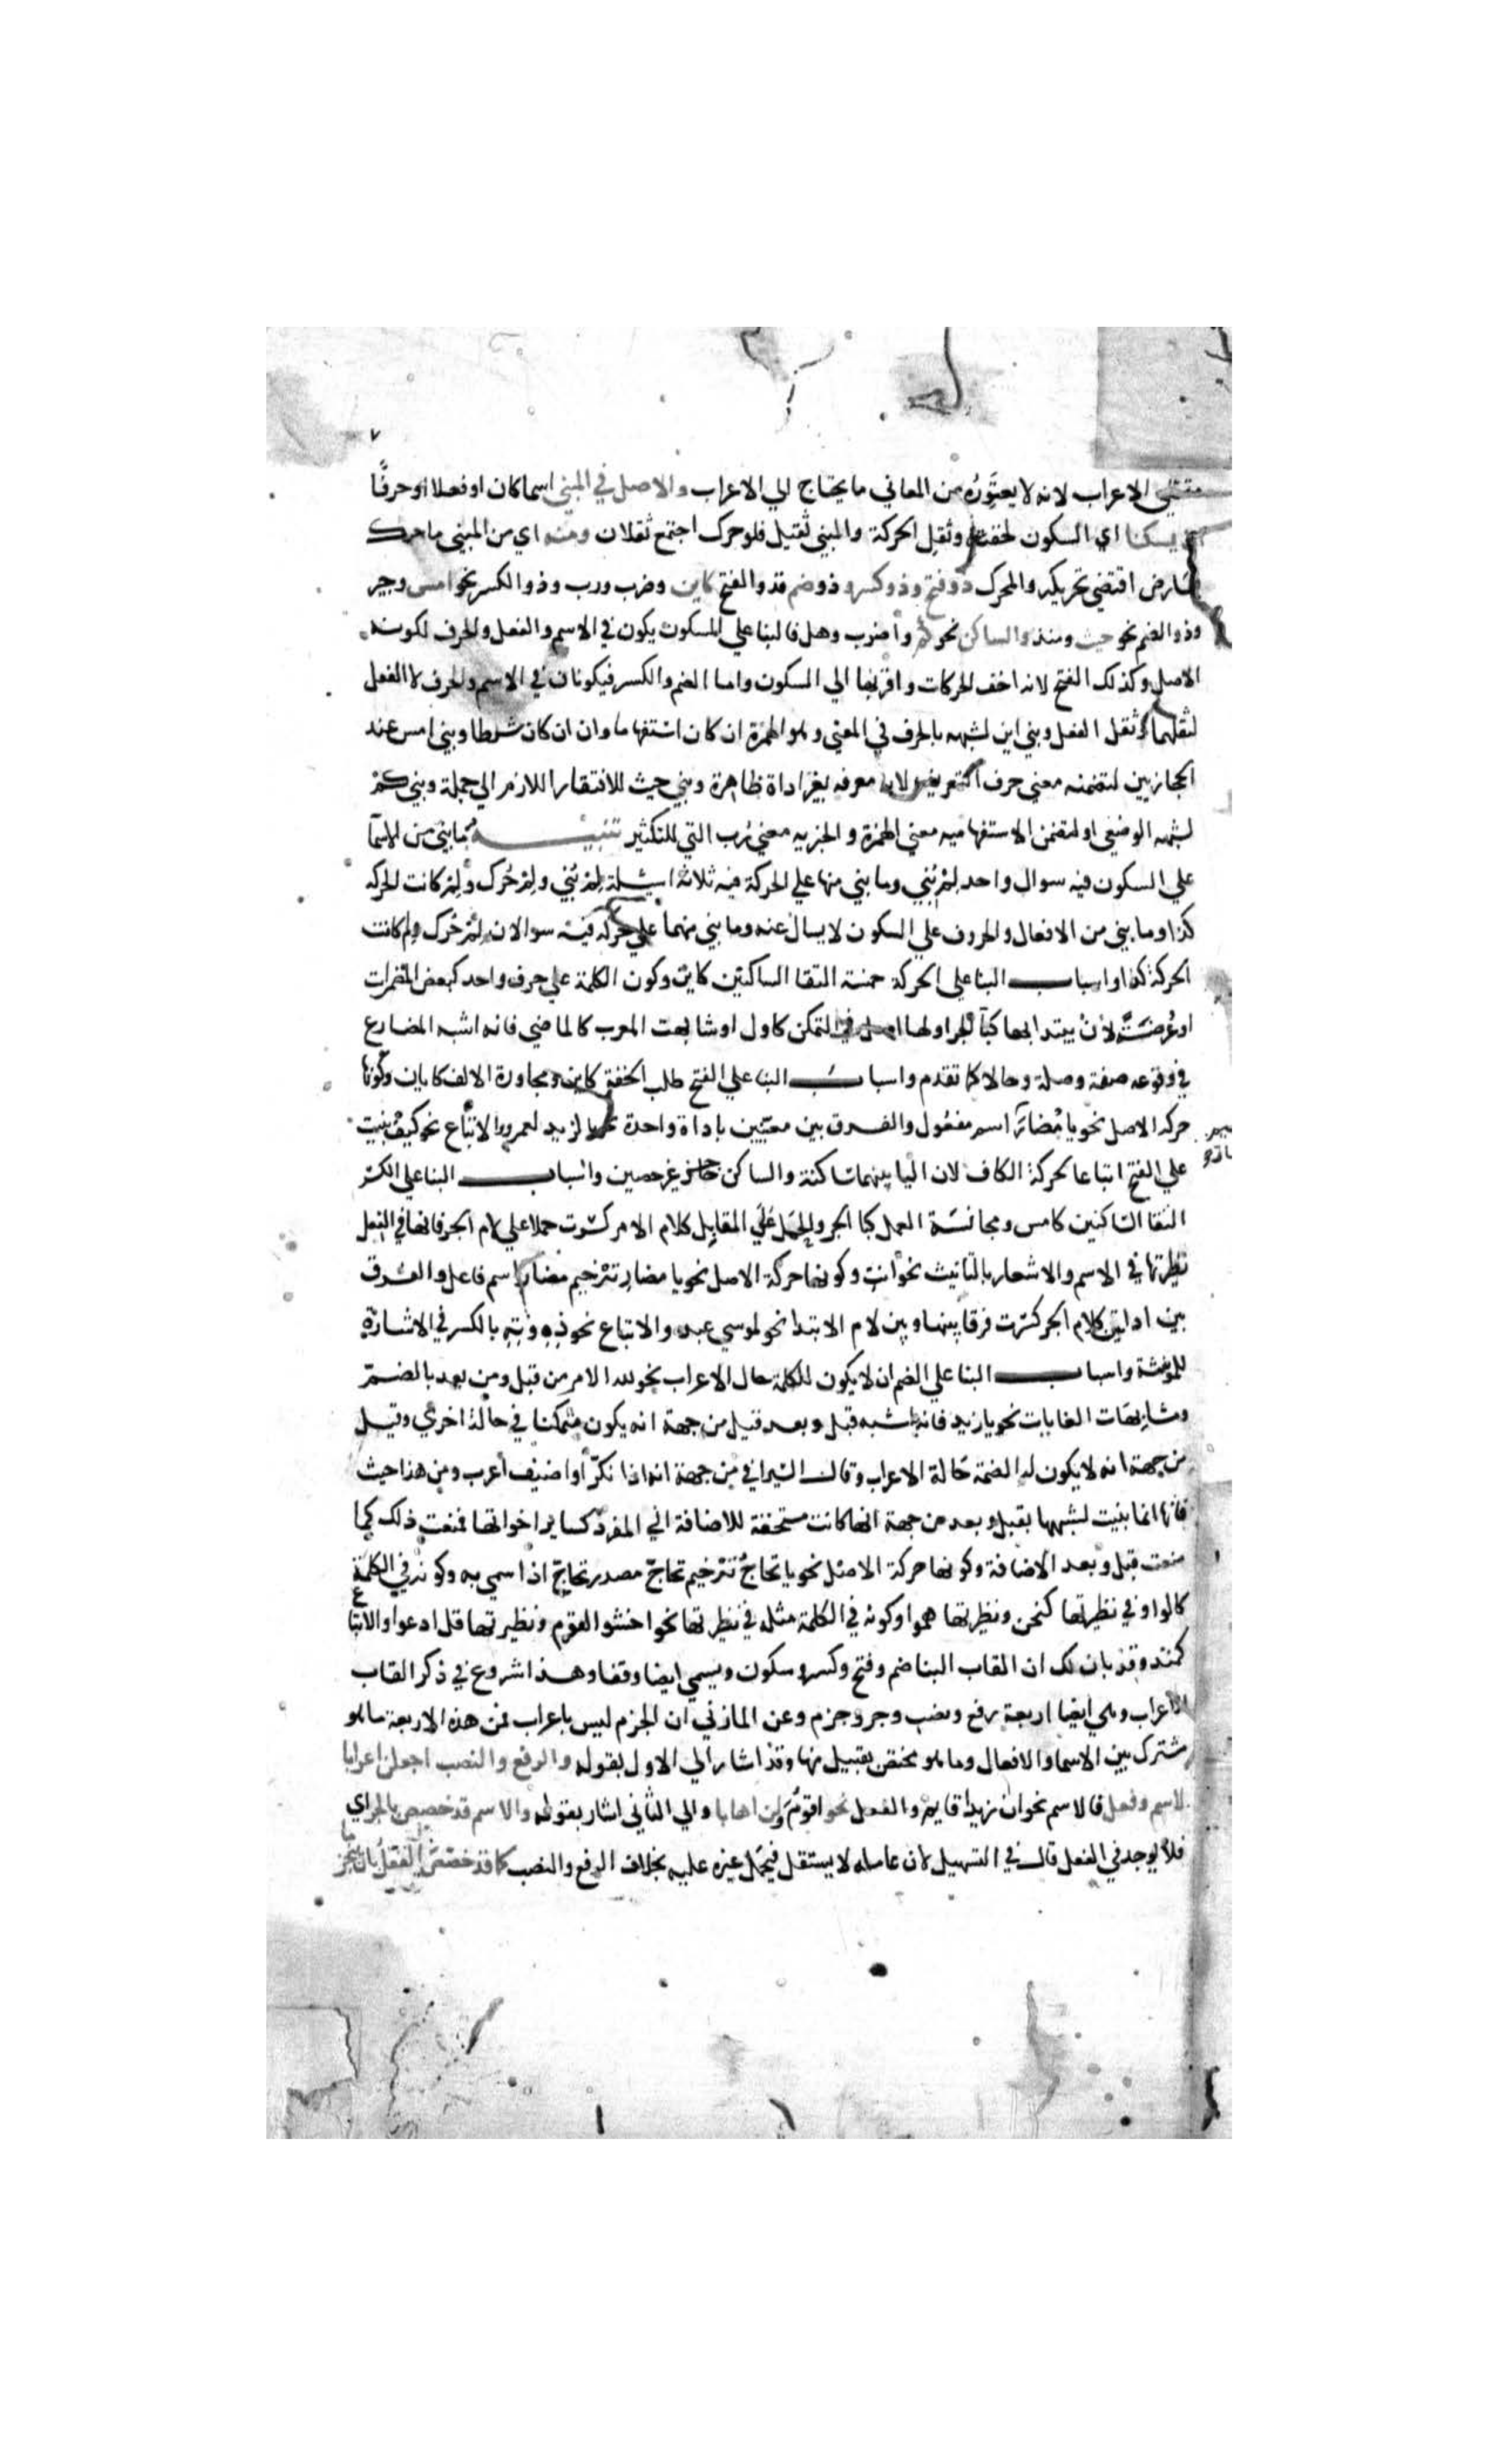 ٧
مقتضي الاعراب لانه لا يعتَوِرُه من المعاني ما يحتاج الي الاعراب والاصل في المبني اسما كان او فعلا او حرفًا
ان يسكنا اي السكون لخفته وثقل الحركة والمبني ثقيل فلو حرك اجتمع ثقلان ومنه اي من المبني ما حرك
لعارض اقتضي تحريكه والمحرك ذو فتح وذو كسر وذو ضم فذو الفتح كاين وضرب ورب وذو الكسر نحو امس وجير
وذو الضم نحو حيث ومنذ والساكن نحو كم واضرب وهل فالبنا علي السكون يكون في الاسم والفعل والحرف لكونه
الاصل وكذلك الفتح لانه اخف الحركات واقربها الي السكون واما الضم والكسر فيكونان في الاسم والحرف لا الفعل
لثقلهما وثقل الفعل وبني اين لشبهه بالحرف في المعني وهو الهمزة ان كان استفهاما وان ان كان شرطا وبني امس عند
الحجازيين لتضمنه معني حرف التعريف لانه معرفه بغير اداة ظاهرة وبني حيث للافتقار اللازم الي جملة وبني كمْ
لشبهه الوضعي او لتضمن الاستفهاميه معني الهمزة والخبريه معني رُب التي للتكثير تنبيه ما بني من الاسما
علي السكون فيه سوال واحد لِمَ بُني وما بني منها علي الحركة فيه ثلاثة اسئلة لِمَ بُني ولِمَ حُرك ولِمَ كانت الحركه
كذا وما بني من الافعال والحروف علي السكون لا يسال عنه وما بني منهما علي حركه فيه سوالان لِمَ حُرك ولم كانت
الحركة كذا واسباب البنا علي الحركة خمسة التقا الساكنين كاين وكون الكلمة علي حرف واحد كبعض المضمرات
او عُرضَةً لاَنْ يبتدا بها كبا الجر او لها اصل في التمكن كاول او شابهت المعرب كالماضي فانه اشبه المضارع
في وقوعه صفة وصلة وحالا كما تقدم واسباب البنا علي الفتح طلب الخفة كاين ومجاورة الالف كايان وكونها
حركه الاصل نحو يا مُضارَ اسم مفعول والفرق بين معنيين باداة واحدة نحو يا لزيد لعمرو والاتباع نحو كيف بنيت
علي الفتح اتباعا لحركة الكاف لان اليا بينهما ساكنة والساكن حاجز غير حصين واسباب البنا علي الكسر
التقا الساكنين كامس ومجانسة العمل كبا الجر والحمل عَلَي المقابِل كلام الامر كسرت حملا علي لام الجر فانها في الفعل
نظيرتها في الاسم والاشعار بالتانيث نحو انتِ وكونها حركة الاصل نحو يا مضارِ ترخيم مضار اسم فاعل والفرق
بين اداتين كلام الجر كسرت فرقا بينها وبين لام الابتدا نحو لموسي عبد والاتباع نحو ذِهِ وتِهِ بالكسر في الاشارة
للمونثة واسباب البنا علي الضم ان لا يكون للكلمة حال الاعراب نحو لله الامر من قبل ومن بعد بالضم
ومشابهَات الغايات نحو يا زيد فانه اشبه قبل وبعد قيل من جهة انه يكون متمكنا في حالة اخري وقيل
من جهة انه لا يكون له الضمة حَالة الاعراب وقال السيرافي من جهة انه اذا نكّر او اضيف اُعرب ومن هذا حيث
فانها انما بنيت لشبهها بقبل وبعد من جهة انها كانت مستحقة للاضافة الي المفرد كساير اخواتها فمنعت ذلك كما
منعت قبل وبعد الاضافة وكونها حركة الاصل نحو يا تحاجُ ترخيم تحاجّ مصدر تحاجّ اذا سمي به وكونه في الكلمة
كالواو في نظيرتها كنحن ونظيرتها همو او كونه في الكلمة مثله في نظيرتها نحو اخشو القوم ونظيرتها قل ادعوا والاتباع
كمنذ وقد بان لك ان القاب البنا ضم وفتح وكسر وسكون ويسمي ايضا وقفا وهذا شروع في ذكر القاب
الاعراب وهي ايضا اربعة رفع ونصب وجر وجزم وعن المازني ان الجزم ليس باعراب فمن هذه الاربعة ما هو
مشترك بين الاسما والافعال وما هو مختص بقبيل منها وقد اشار الي الاول بقوله والرفع والنصب اجعلن اعرابا
لاسم وفعل فالاسم نحو ان زيدا قايم والفعل نحو اقومُ ولن اهابا والي الثاني اشار بقوله والاسم قد خصص بالجر اي
فلا يوجد في الفعل قال في التسهيل لان عامله لا يستقل فيحمل غيره عليه بخلاف الرفع والنصب كما قد خصص الفعل بان ينجزما